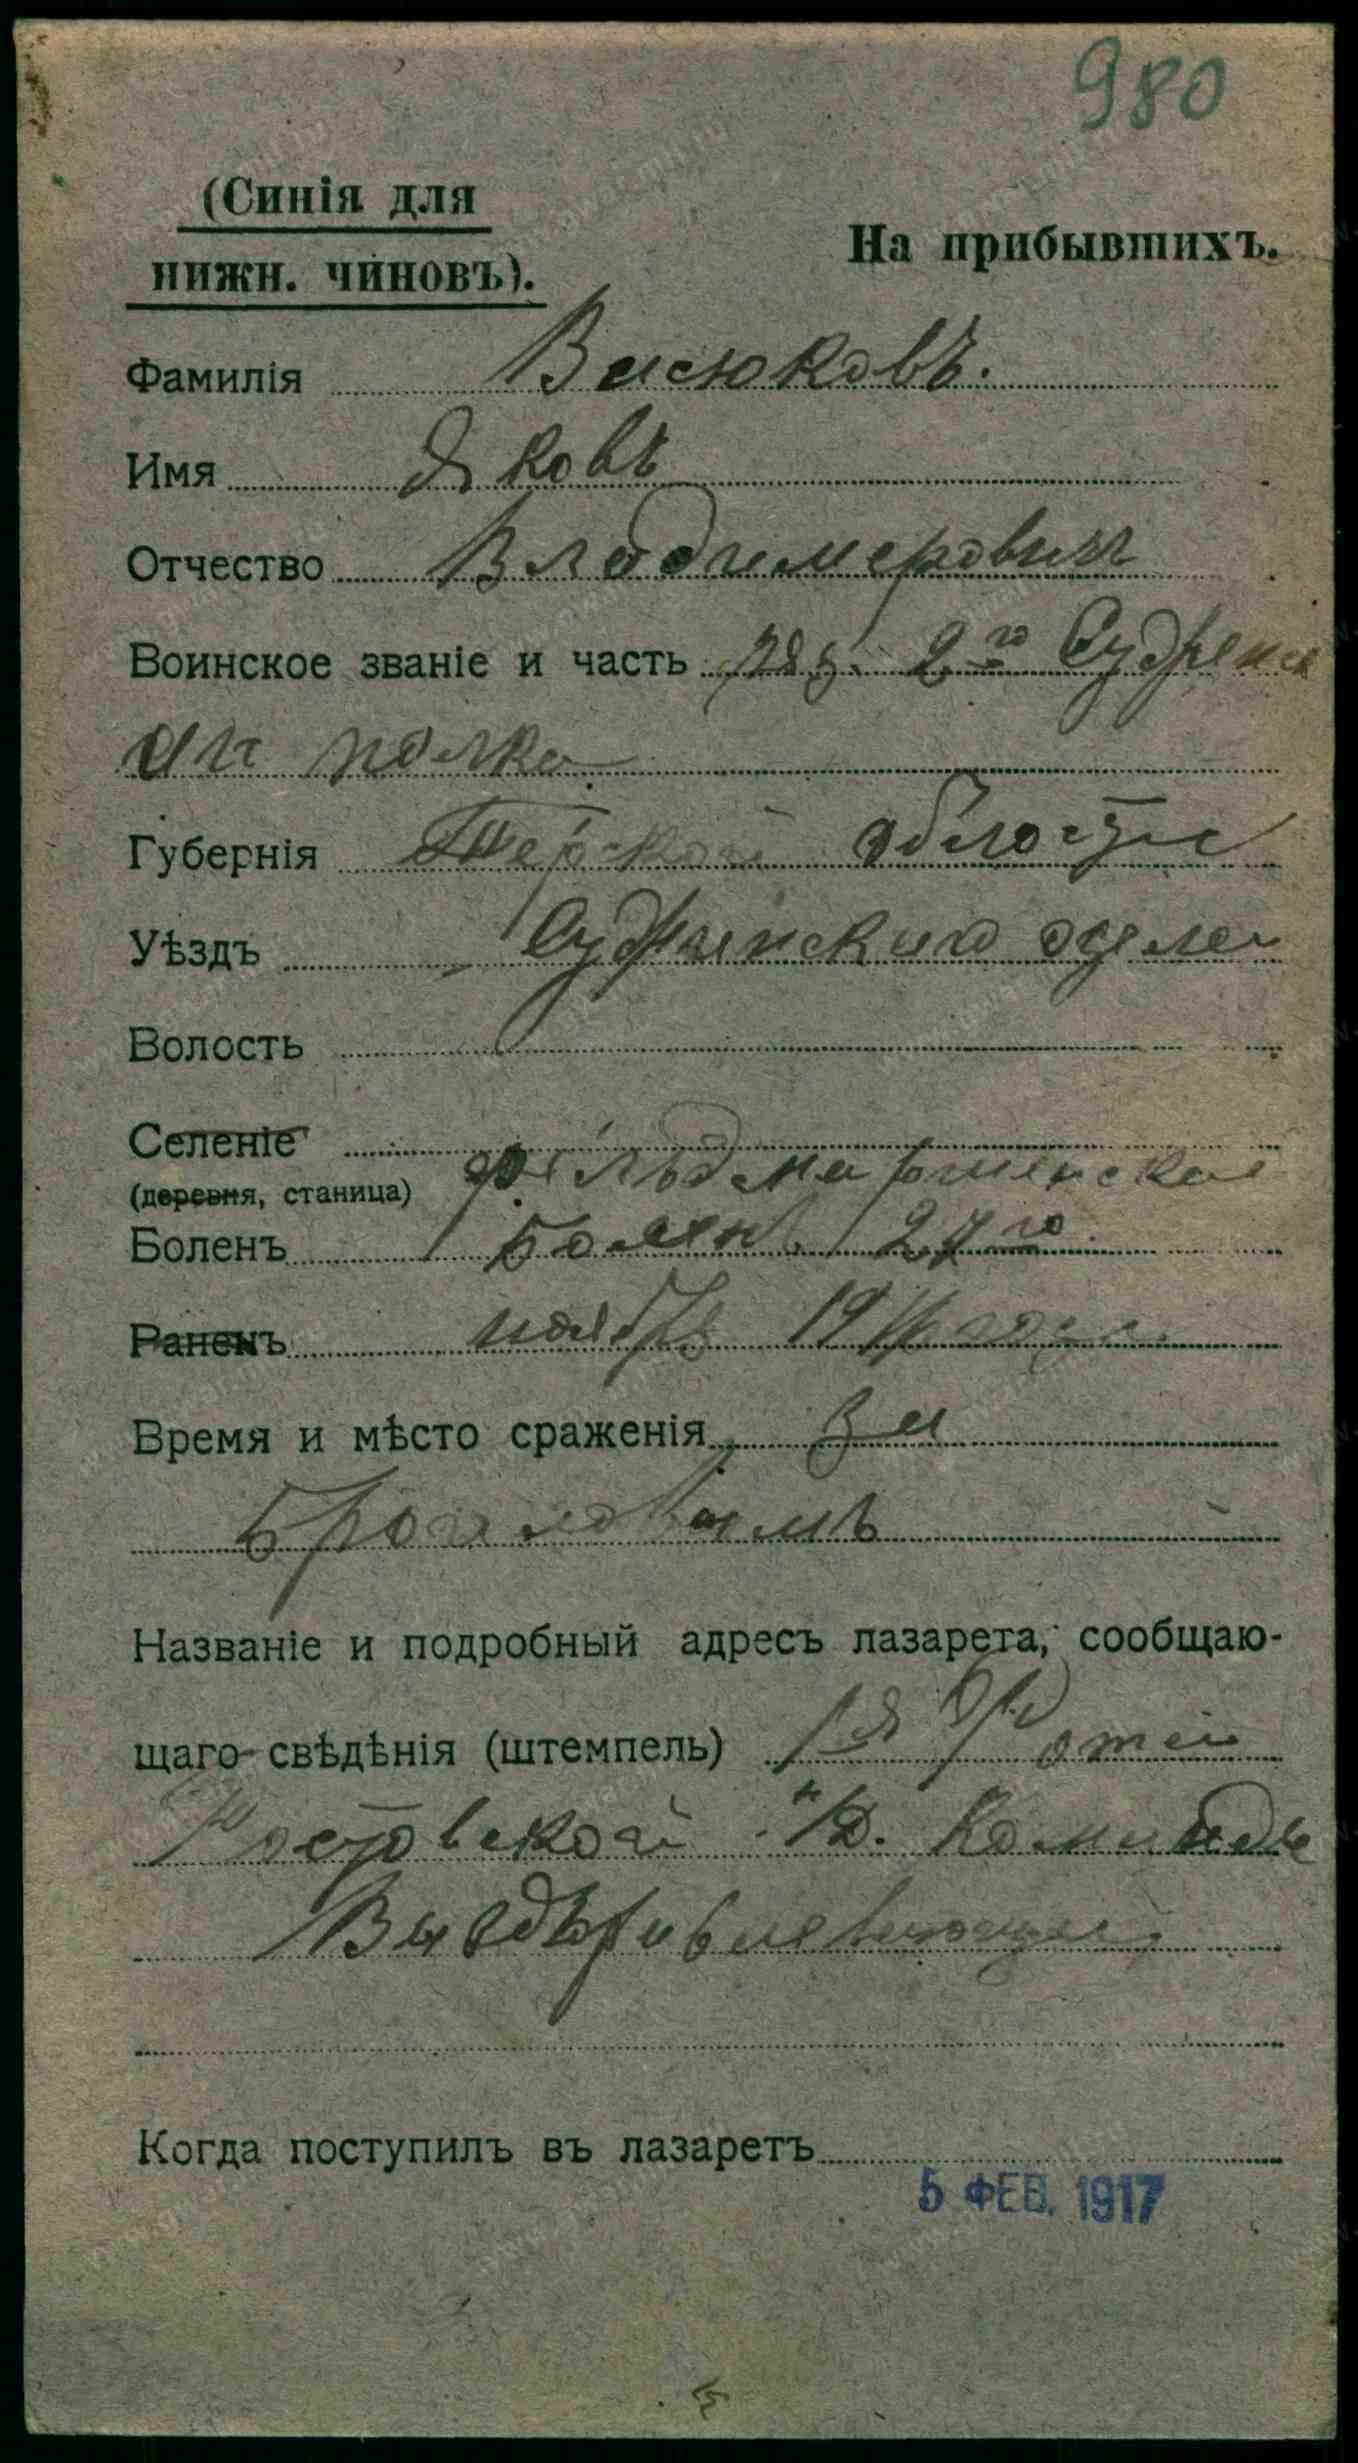 980
(Синія для
нижн. чиновъ).
На прибывшихъ.
Фамилія Васюковъ.
Имя Яковъ
Отчество Владимеровичъ
Воинское званіе и часть 2го
полка
Губернія Терской области
Уѣздъ отдела
Волость
Селеніе
(деревня, станица) фельдмаршенская
Боленъ Боленъ 27го
Раненъ ноября года
Время и мѣсто сраженія за
Названіе и подробный адресъ лазарета, сообщаю-
щаго свѣдѣнія (штемпель) 1я
Ростовской Команды
Когда поступилъ въ лазаретъ
5 ФЕВ. 1917